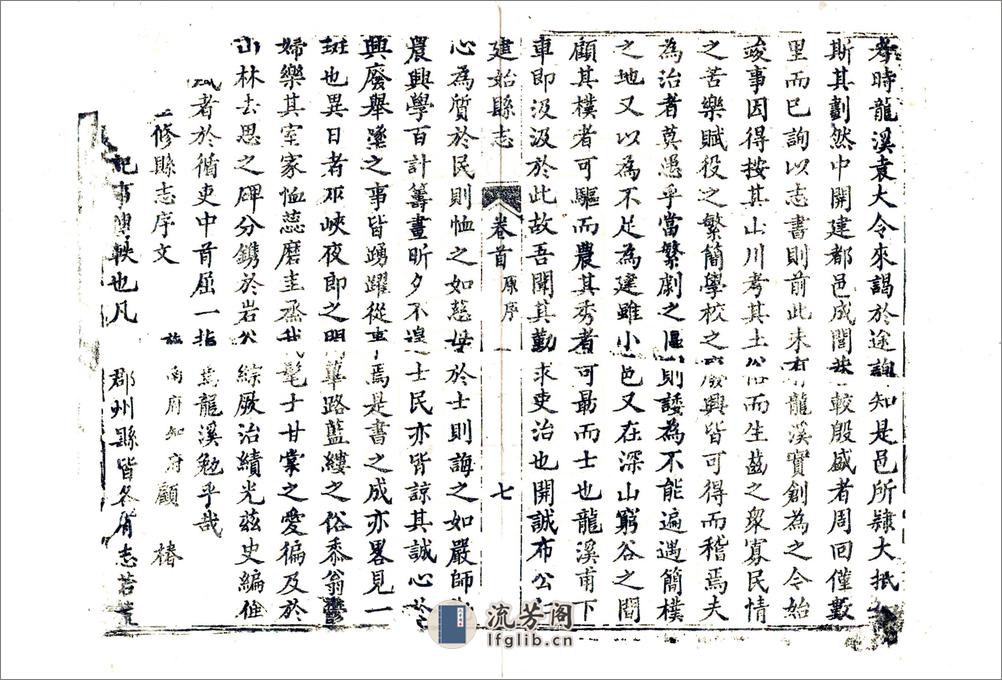 考時龍溪袁大令來謁於途詢知是邑所隸大抵
斯其劃然中開建都邑成閭井較殷盛者周回僅數
里而已詢以志書則前此未有龍溪實創為之今始
竣事因得按其山川考其土俗而生茲之衆寡民情
之苦樂賦役之繁簡學校之廢興皆可得而稽焉夫
為治者莫愚乎當繁劇之區則諉為不能遍遇簡樸
之地又以為不足為建雖小邑又在深山窮谷之間
顧其樸者可驅而農其秀者可勗而士也龍溪甫下
車即汲汲於此故吾聞其勤求吏治也開誠布公
建始縣志 卷首 原序 七
心為質於民則恤之如慈母於士則誨之如嚴師
農興學百計籌畫昕夕不遑士民亦皆諒其誠心於
興廢舉墜之事皆踴躍從事焉是書之成亦畧見一
斑也異日者巫峽夜郎之間蓽路藍縷之俗黍翁
婦樂其室家恤蕊磨圭烝我髦士甘棠之愛徧及於
山林去思之碑分鐫於岩谷綜厥治績光茲史編
者於循吏中首屈一指為龍溪勉乎哉
南府知府顧 椿
修縣志序文
記事 也凡 郡州縣皆各有志若
流芳阁
lfglib.cn